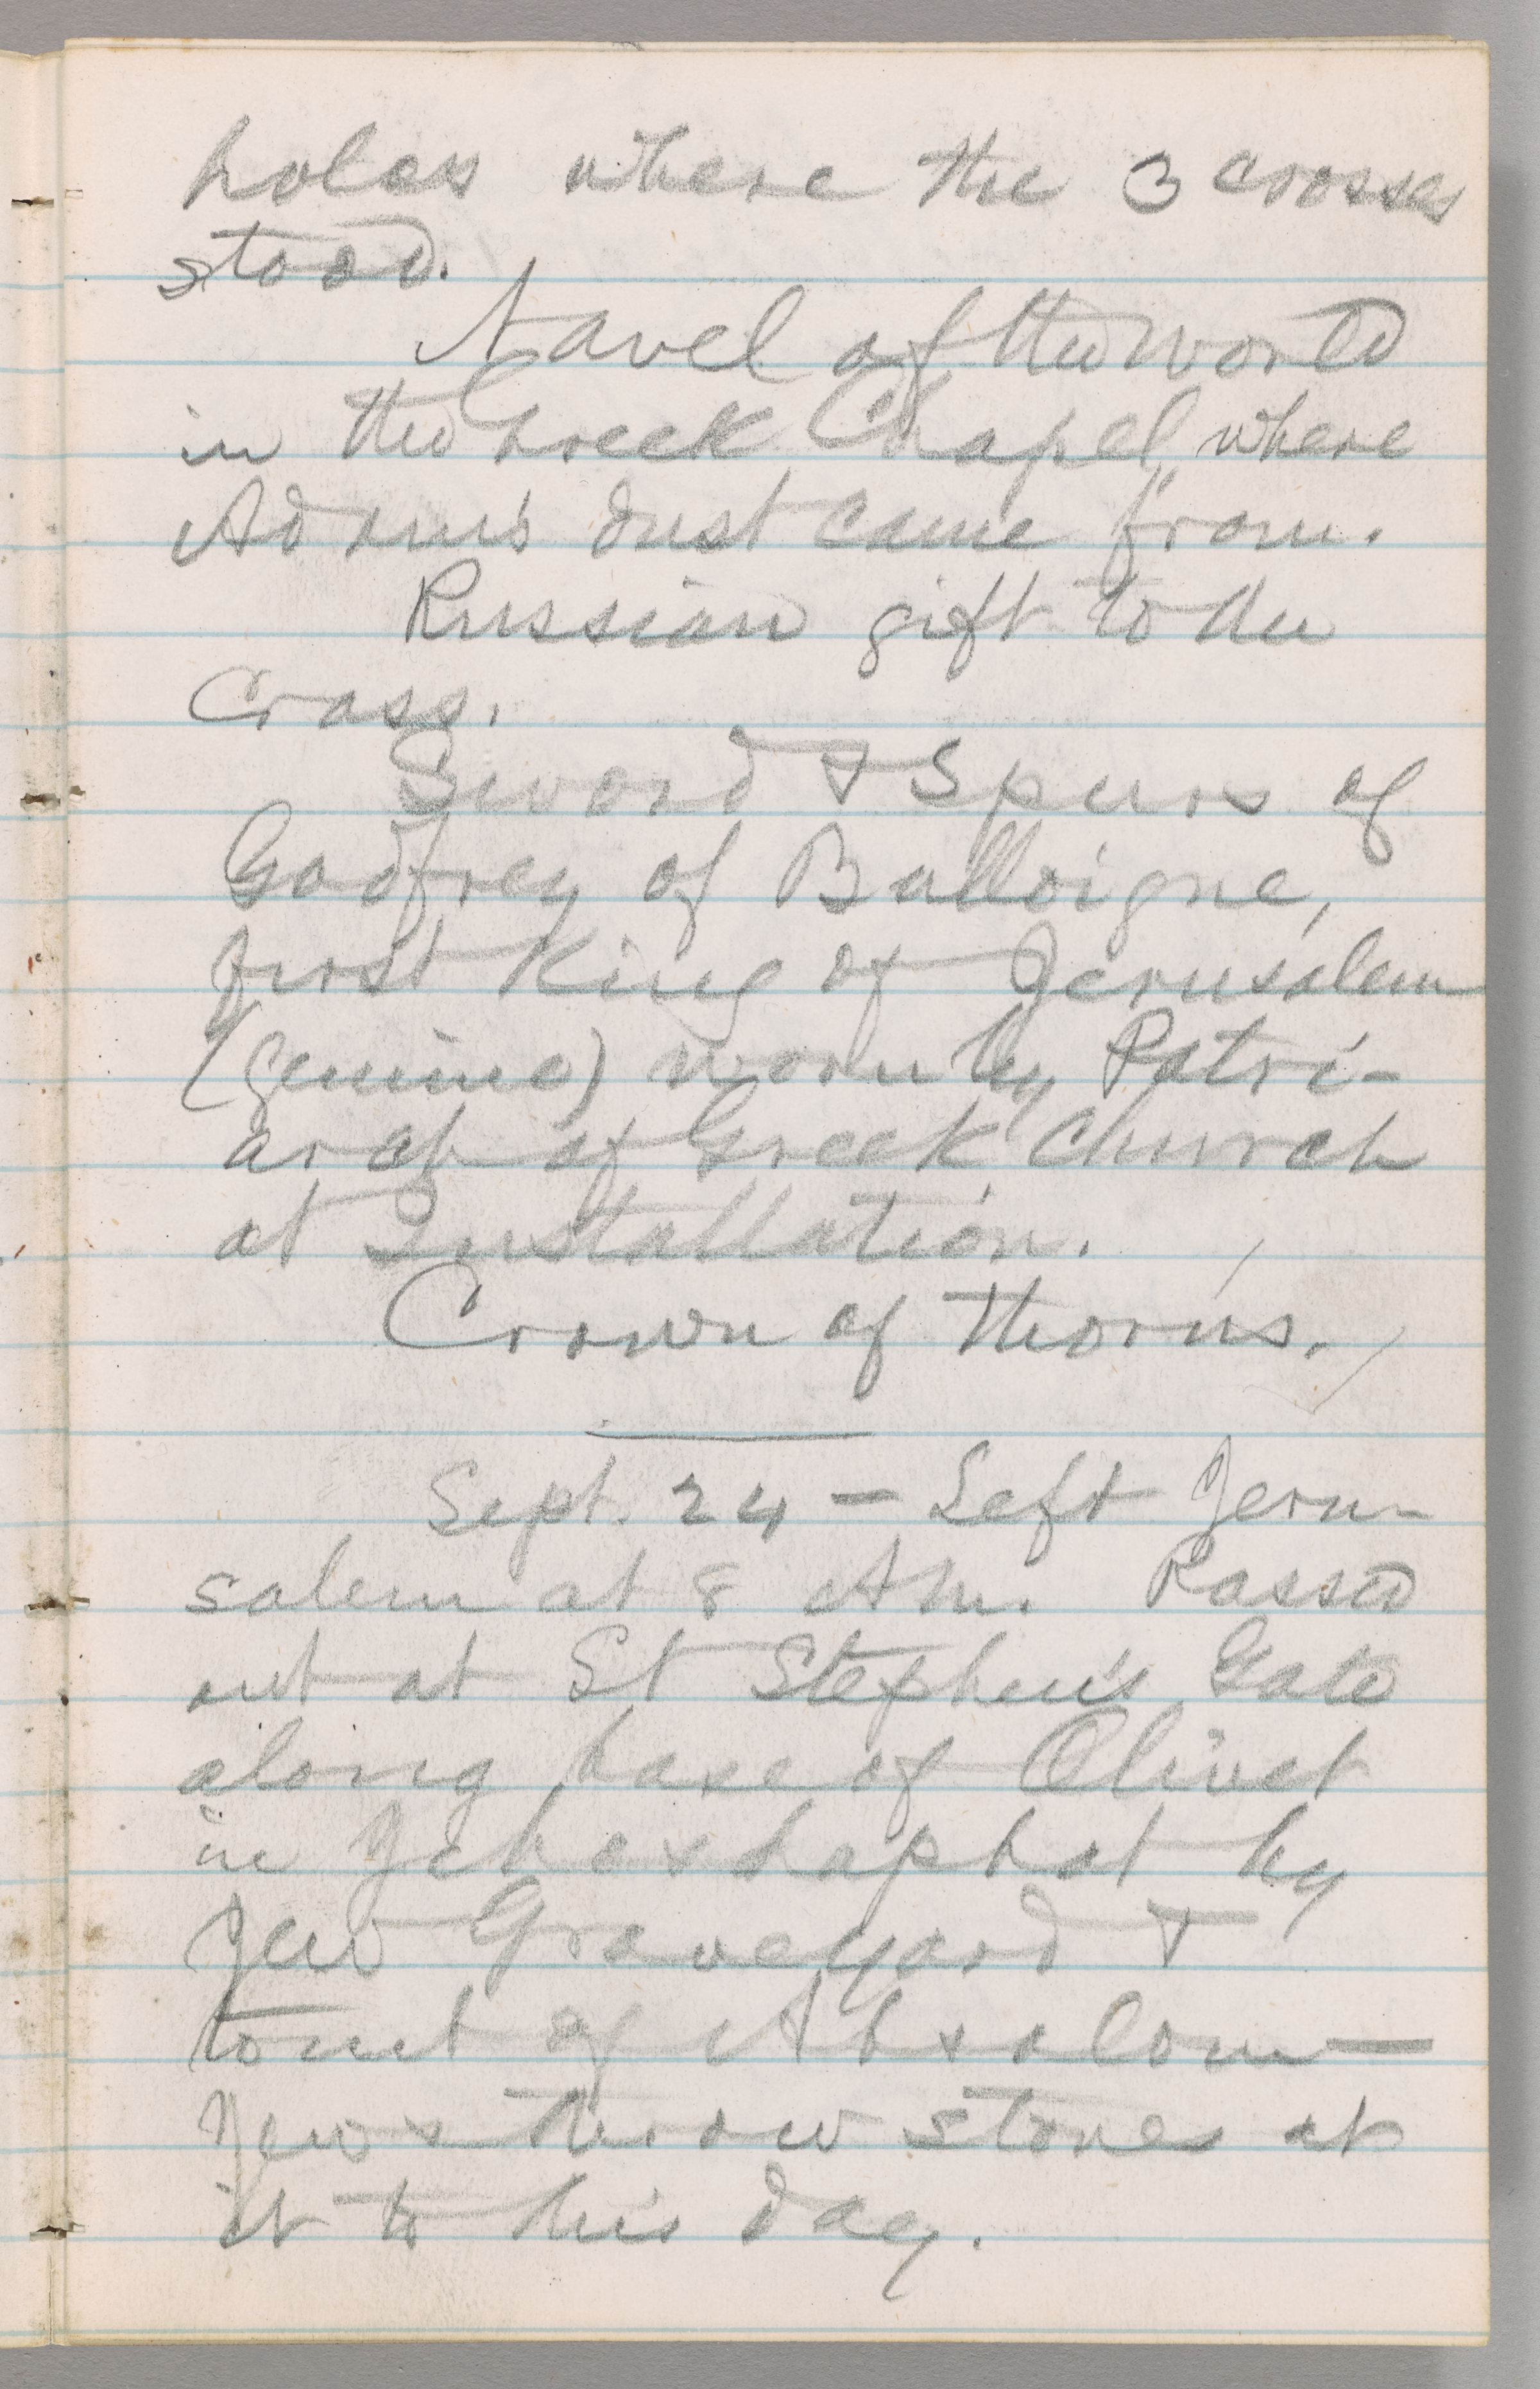 holes where the 3 crosses
stood.
Navel of the world
in the Greek Chapel, where
Adam's dust came from.
Russian gift to the
Cross.
Sword & Spurs of
Godfrey of Bulloigne,
first King of Jerusalem
(genuine) worn by Patri-
arch of Greek Church
at Installation.
Crown of Thorns.
Sept. 24 — Left Jeru-
salem at 8 AM. Passed
out at St Stephen's Gate
along base of Olivet
in Jehoshaphat by
Jew Graveyard &
tomb of Absalom—
Jews throw stones at
it to this day.